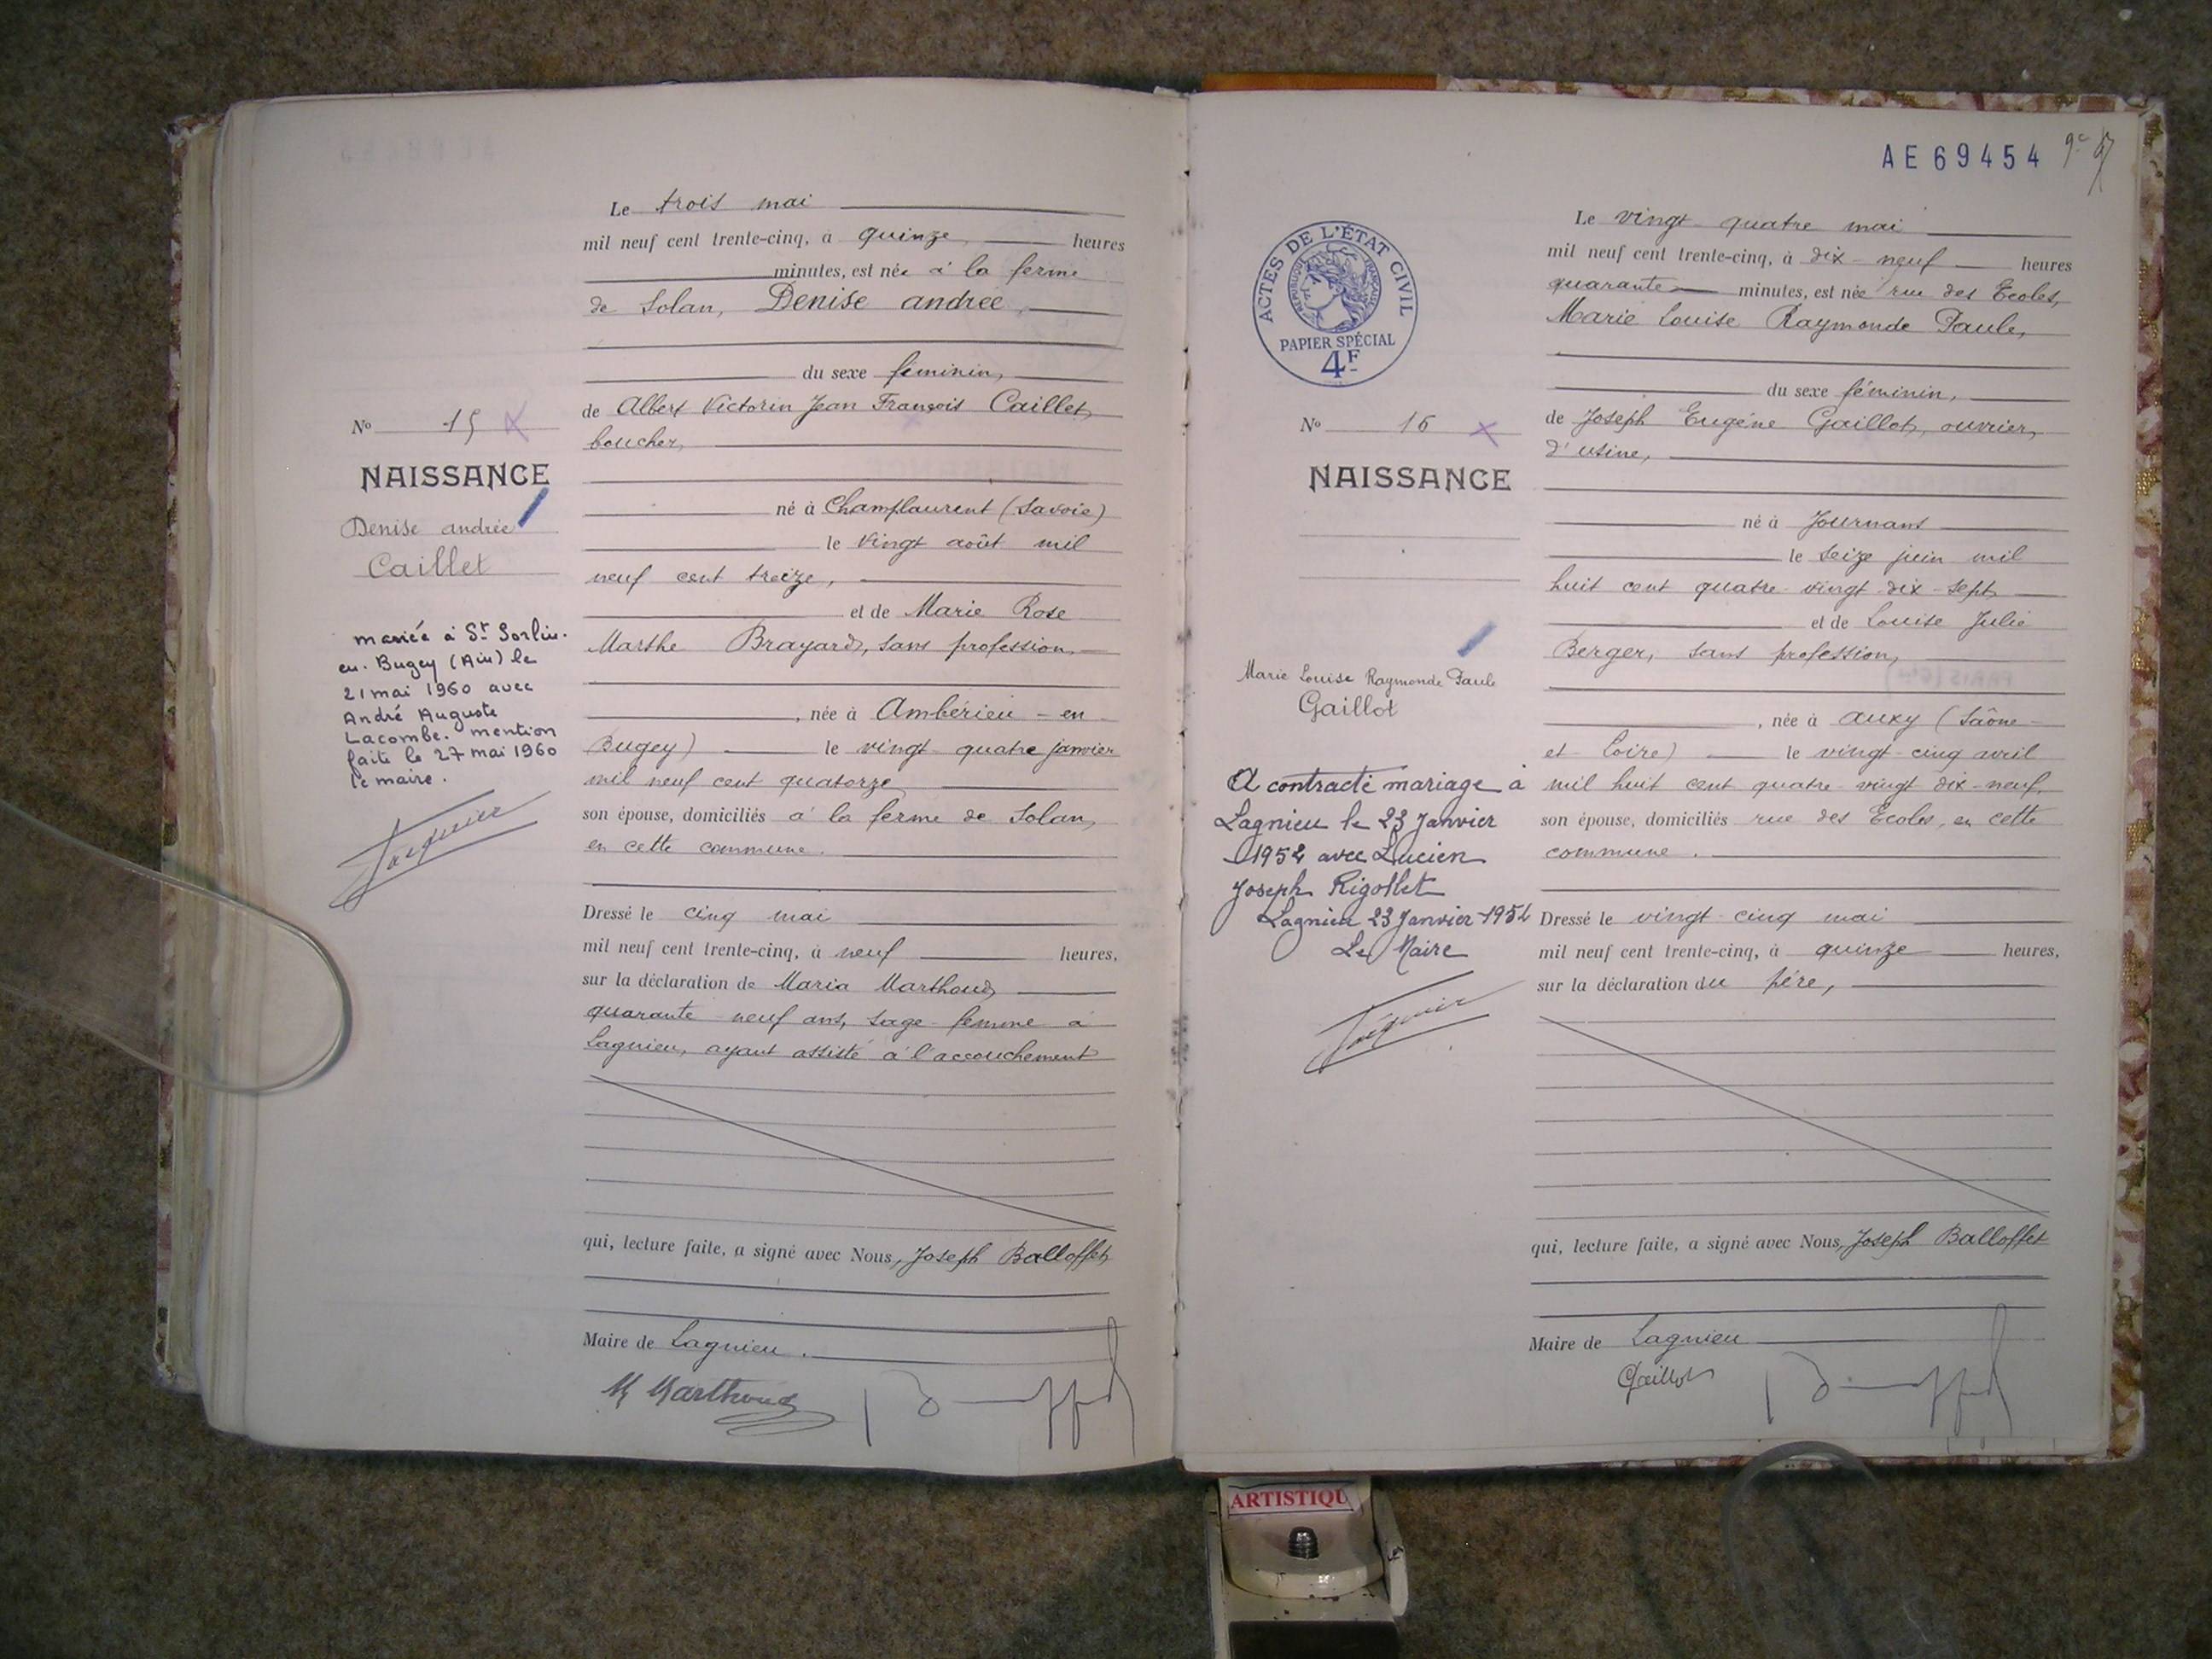 Le trois mai
mil neuf cent trente-cinq, à quinze heures
minutes, est née à la ferme
de Solan, Denise andrée,
du sexe féminin,
de Albert Victorin Jean François Caillet,
boucher,
né à Champlaurent (Savoie)
le vingt août mil
neuf cent treize,
et de Marie Rose
Marthe Brayard, sans profession,
, née à Ambérieu-en-
Bugey) le vingt-quatre janvier
mil neuf cent quatorze
son épouse, domiciliés à la ferme de Solan,
en cette commune.
Dressé le cinq mai
mil neuf cent trente-cinq, à neuf heures,
sur la déclaration de Maria Marthoud,
quarante-neuf ans, sage-femme à
Lagnieu, ayant assisté à l'accouchement
qui, lecture faite, a signé avec Nous, Joseph Balloffet,
Maire de Lagnieu.
M Marthoud
No 15
NAISSANCE
Denise andrée
Caillet
mariée à St Sorlin-
en-Bugey (Ain) le
21 mai 1960 avec
André Auguste
Lacombe. mention
faite le 27 mai 1960
le maire.
AE69454
ACTES DE L'ÉTAT CIVIL
RÉPUBLIQUE FRANÇAISE
PAPIER SPÉCIAL
4F
Le vingt-quatre mai
mil neuf cent trente-cinq, à dix-neuf heures
quarante minutes, est née rue des Ecoles,
Marie Louise Raymonde Paule,
du sexe féminin,
de Joseph Eugène Gaillot, ouvrier
d'usine,
né à Journans
le seize juin mil
huit cent quatre-vingt-dix-sept
et de Louise Julie
Berger, sans profession,
, née à Auxy (Saône-
et-Loire) le vingt-cinq avril
mil huit cent quatre-vingt-dix-neuf,
son épouse, domiciliés rue des Ecoles, en cette
commune.
Dressé le vingt-cinq mai
mil neuf cent trente-cinq, à quinze heures,
sur la déclaration du père,
qui, lecture faite, a signé avec Nous, Joseph Balloffet
Maire de Lagnieu
Gaillot
No 16
NAISSANCE
Marie Louise Raymonde Paule
Gaillot
A contracté mariage à
Lagnieu le 23 Janvier
1954 avec Lucien
Joseph Rigollet
Lagnieu 23 Janvier 1954
Le Maire
ARTISTIQU